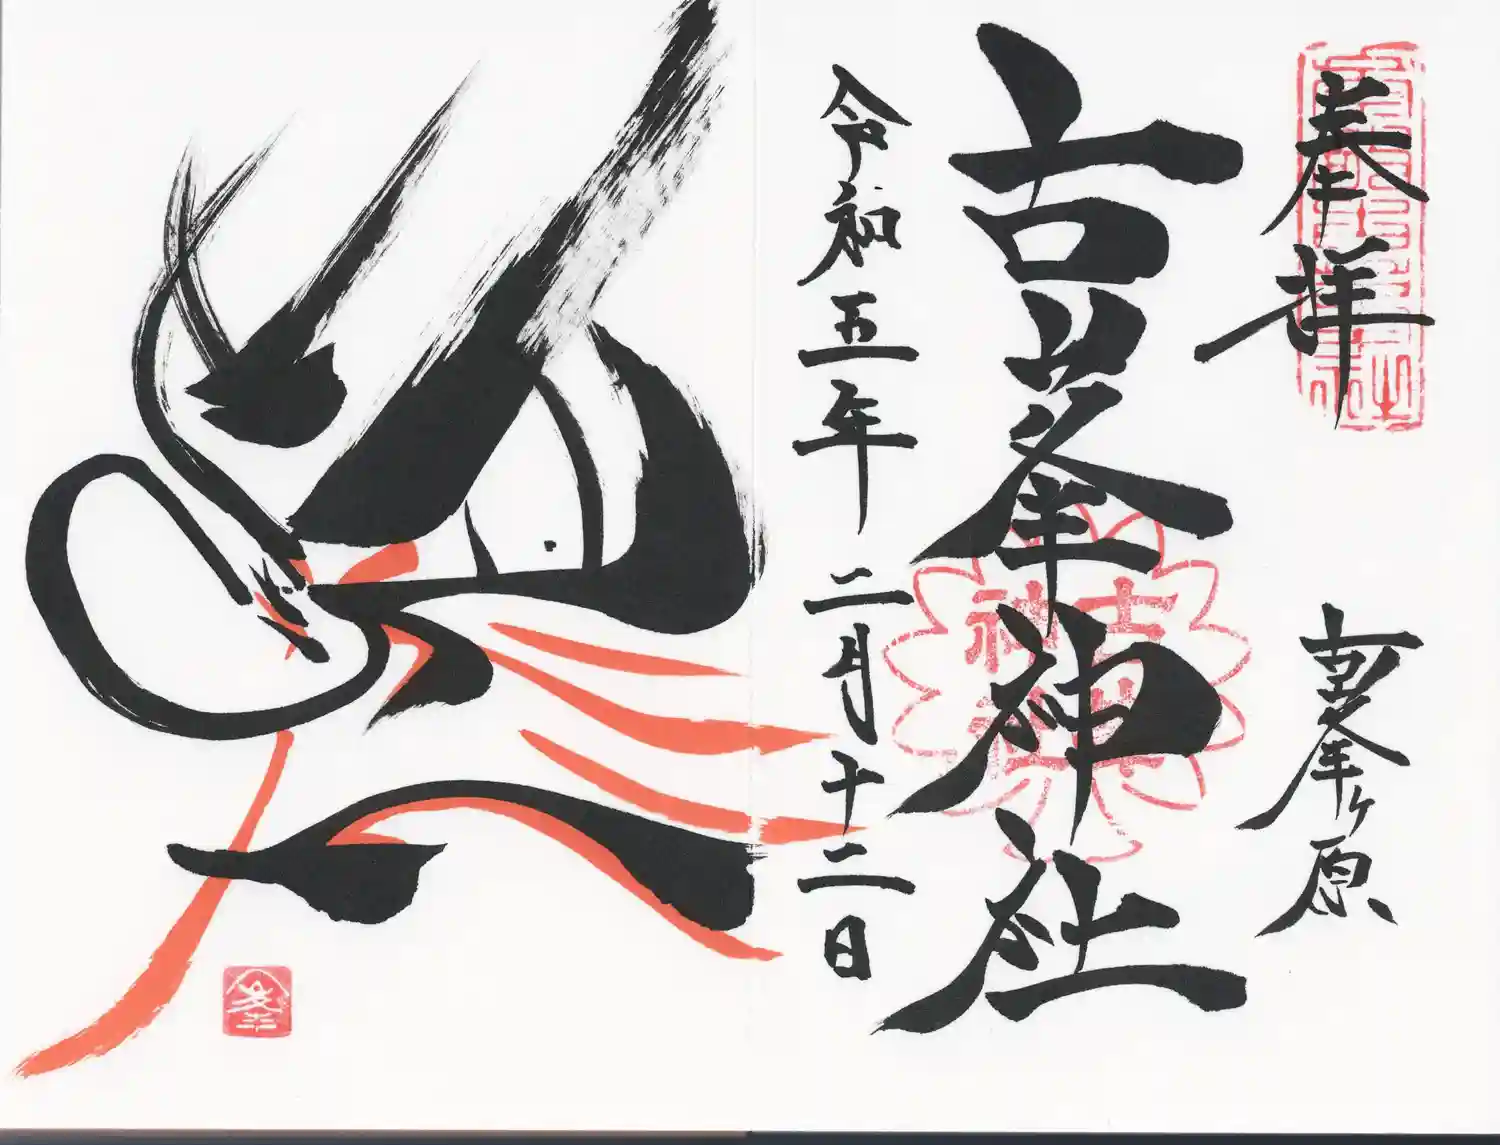 奉拝
古峯ヶ原
古峯神社
令和五年二月十二日
峯